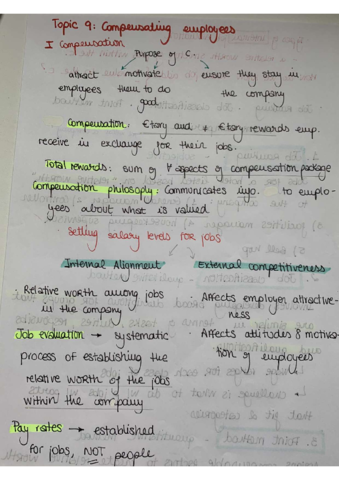 Topic 9: Compensating employees
I Compensation
Purpose of C.
attract employees
motivate them to do good
ensure they stay in the company
Compensation: €tary and ≠ €tary rewards emp.
receive in exchange for their jobs.
Total rewards: sum of ∀ aspects of compensation package
Compensation philosophy: communicates info. to emplo-
yees about what is valued
Setting salary levels for jobs
Internal Alignment
External competitiveness
· Relative worth among jobs
in the company
· Affects employer attractive-
ness
· Affects attitudes & motiva-
tion of employees
Job evaluation → systematic
process of establishing the
relative worth of the jobs
within the company
Pay rates → established
for jobs, NOT people